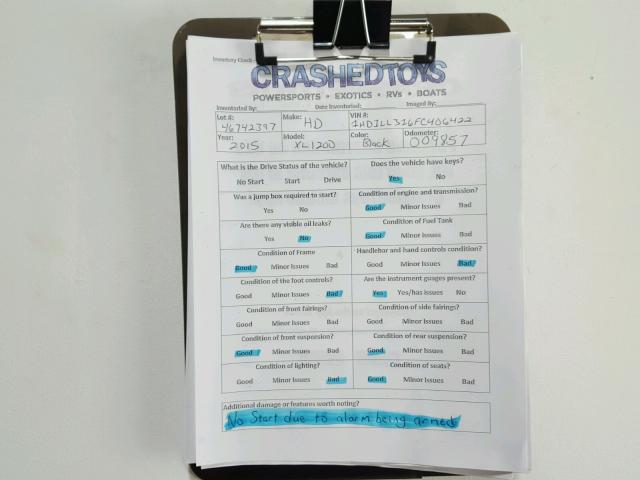 Inventory Check
CRASHEDTOYS
POWERSPORTS • EXOTICS • RVs • BOATS
Inventoried By: Date Inventoried: Imaged By:
Lot #: 46742397 Make: HD VIN #: 1HD1LL316FC406422
Year: 2015 Model: XL1200 Color: Black Odometer: 009857
What is the Drive Status of the vehicle? Does the vehicle have keys?
No Start Start Drive Yes No
Was a jump box required to start? Condition of engine and transmission?
Yes No Good Minor Issues Bad
Are there any visible oil leaks? Condition of Fuel Tank
Yes No Good Minor Issues Bad
Condition of Frame Handlebar and hand controls condition?
Good Minor Issues Bad Good Minor Issues Bad
Condition of the foot controls? Are the instrument guages present?
Good Minor Issues Bad Yes Yes/has issues No
Condition of front fairings? Condition of side fairings?
Good Minor Issues Bad Good Minor Issues Bad
Condition of front suspension? Condition of rear suspension?
Good Minor Issues Bad Good Minor Issues Bad
Condition of lighting? Condition of seats?
Good Minor Issues Bad Good Minor Issues Bad
Additional damage or features worth noting?
No Start due to alarm being armed